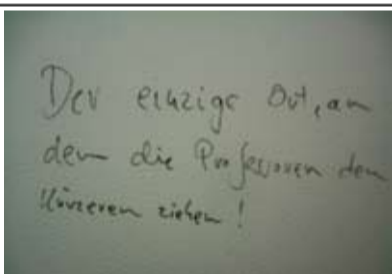 Der einzige Ort, an
dem die Professoren den
Kürzeren ziehen!